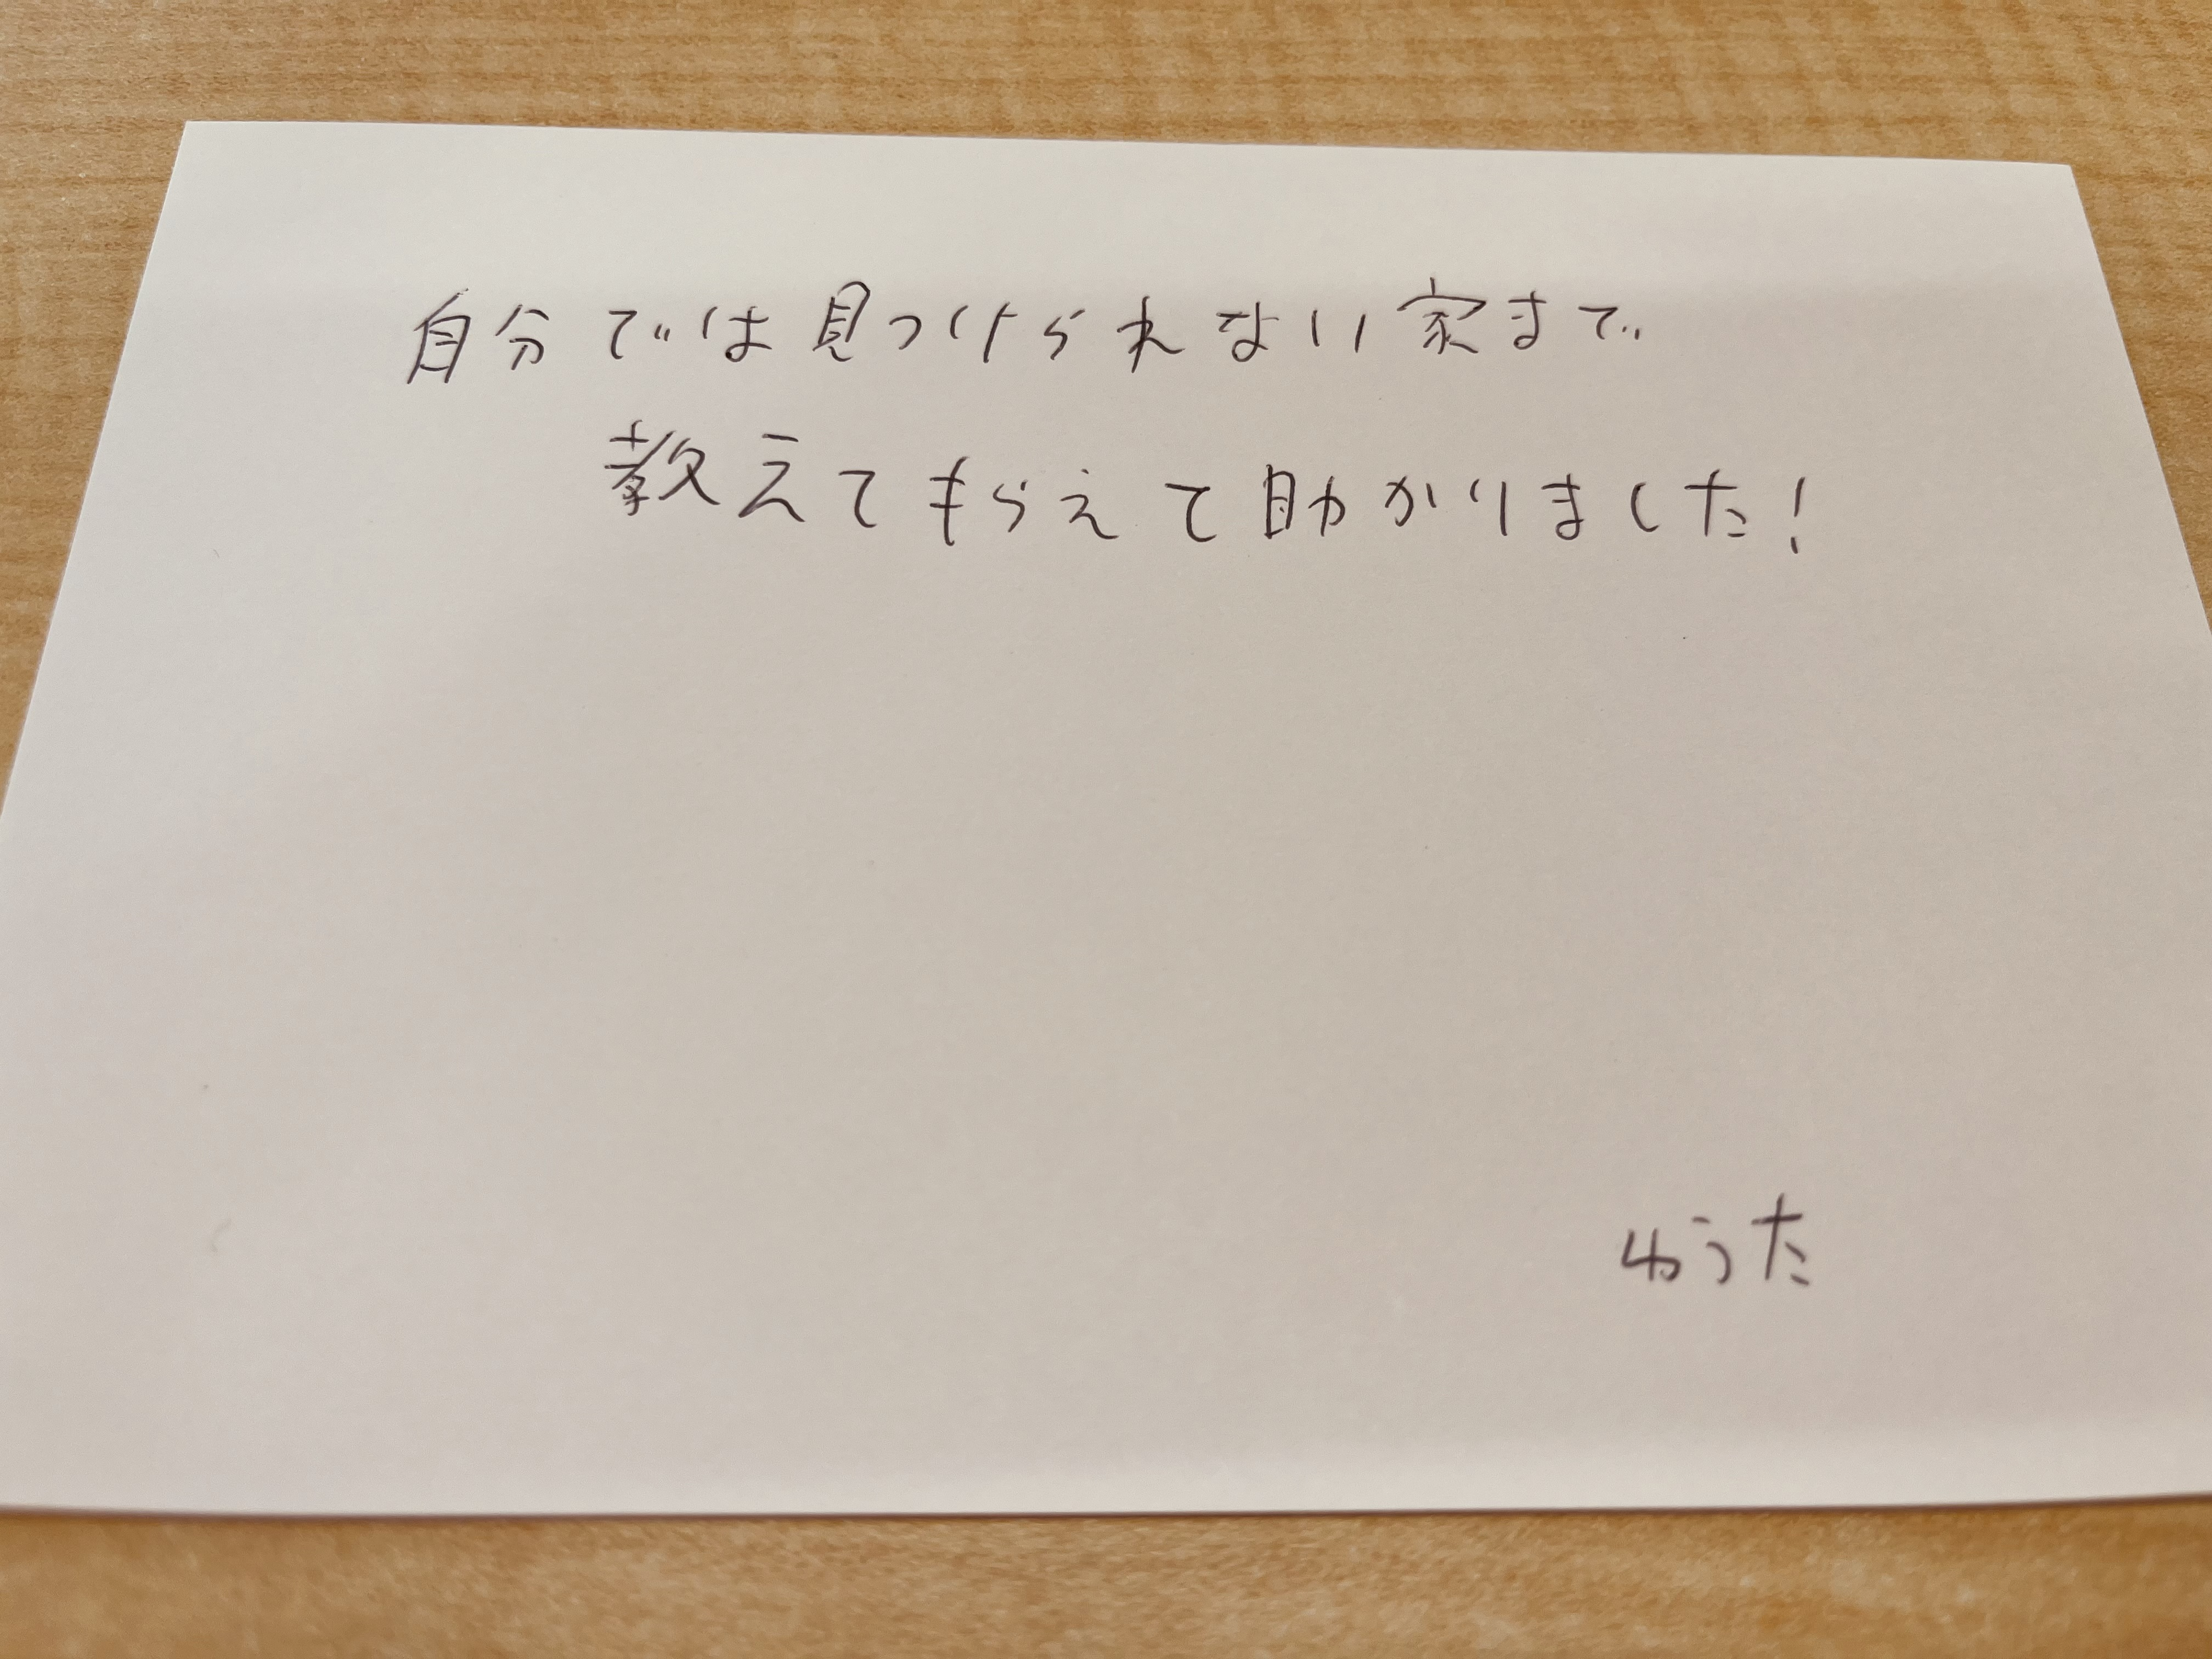 自分では見つけられない家まで
教えてもらえて助かりました!
ゆうた